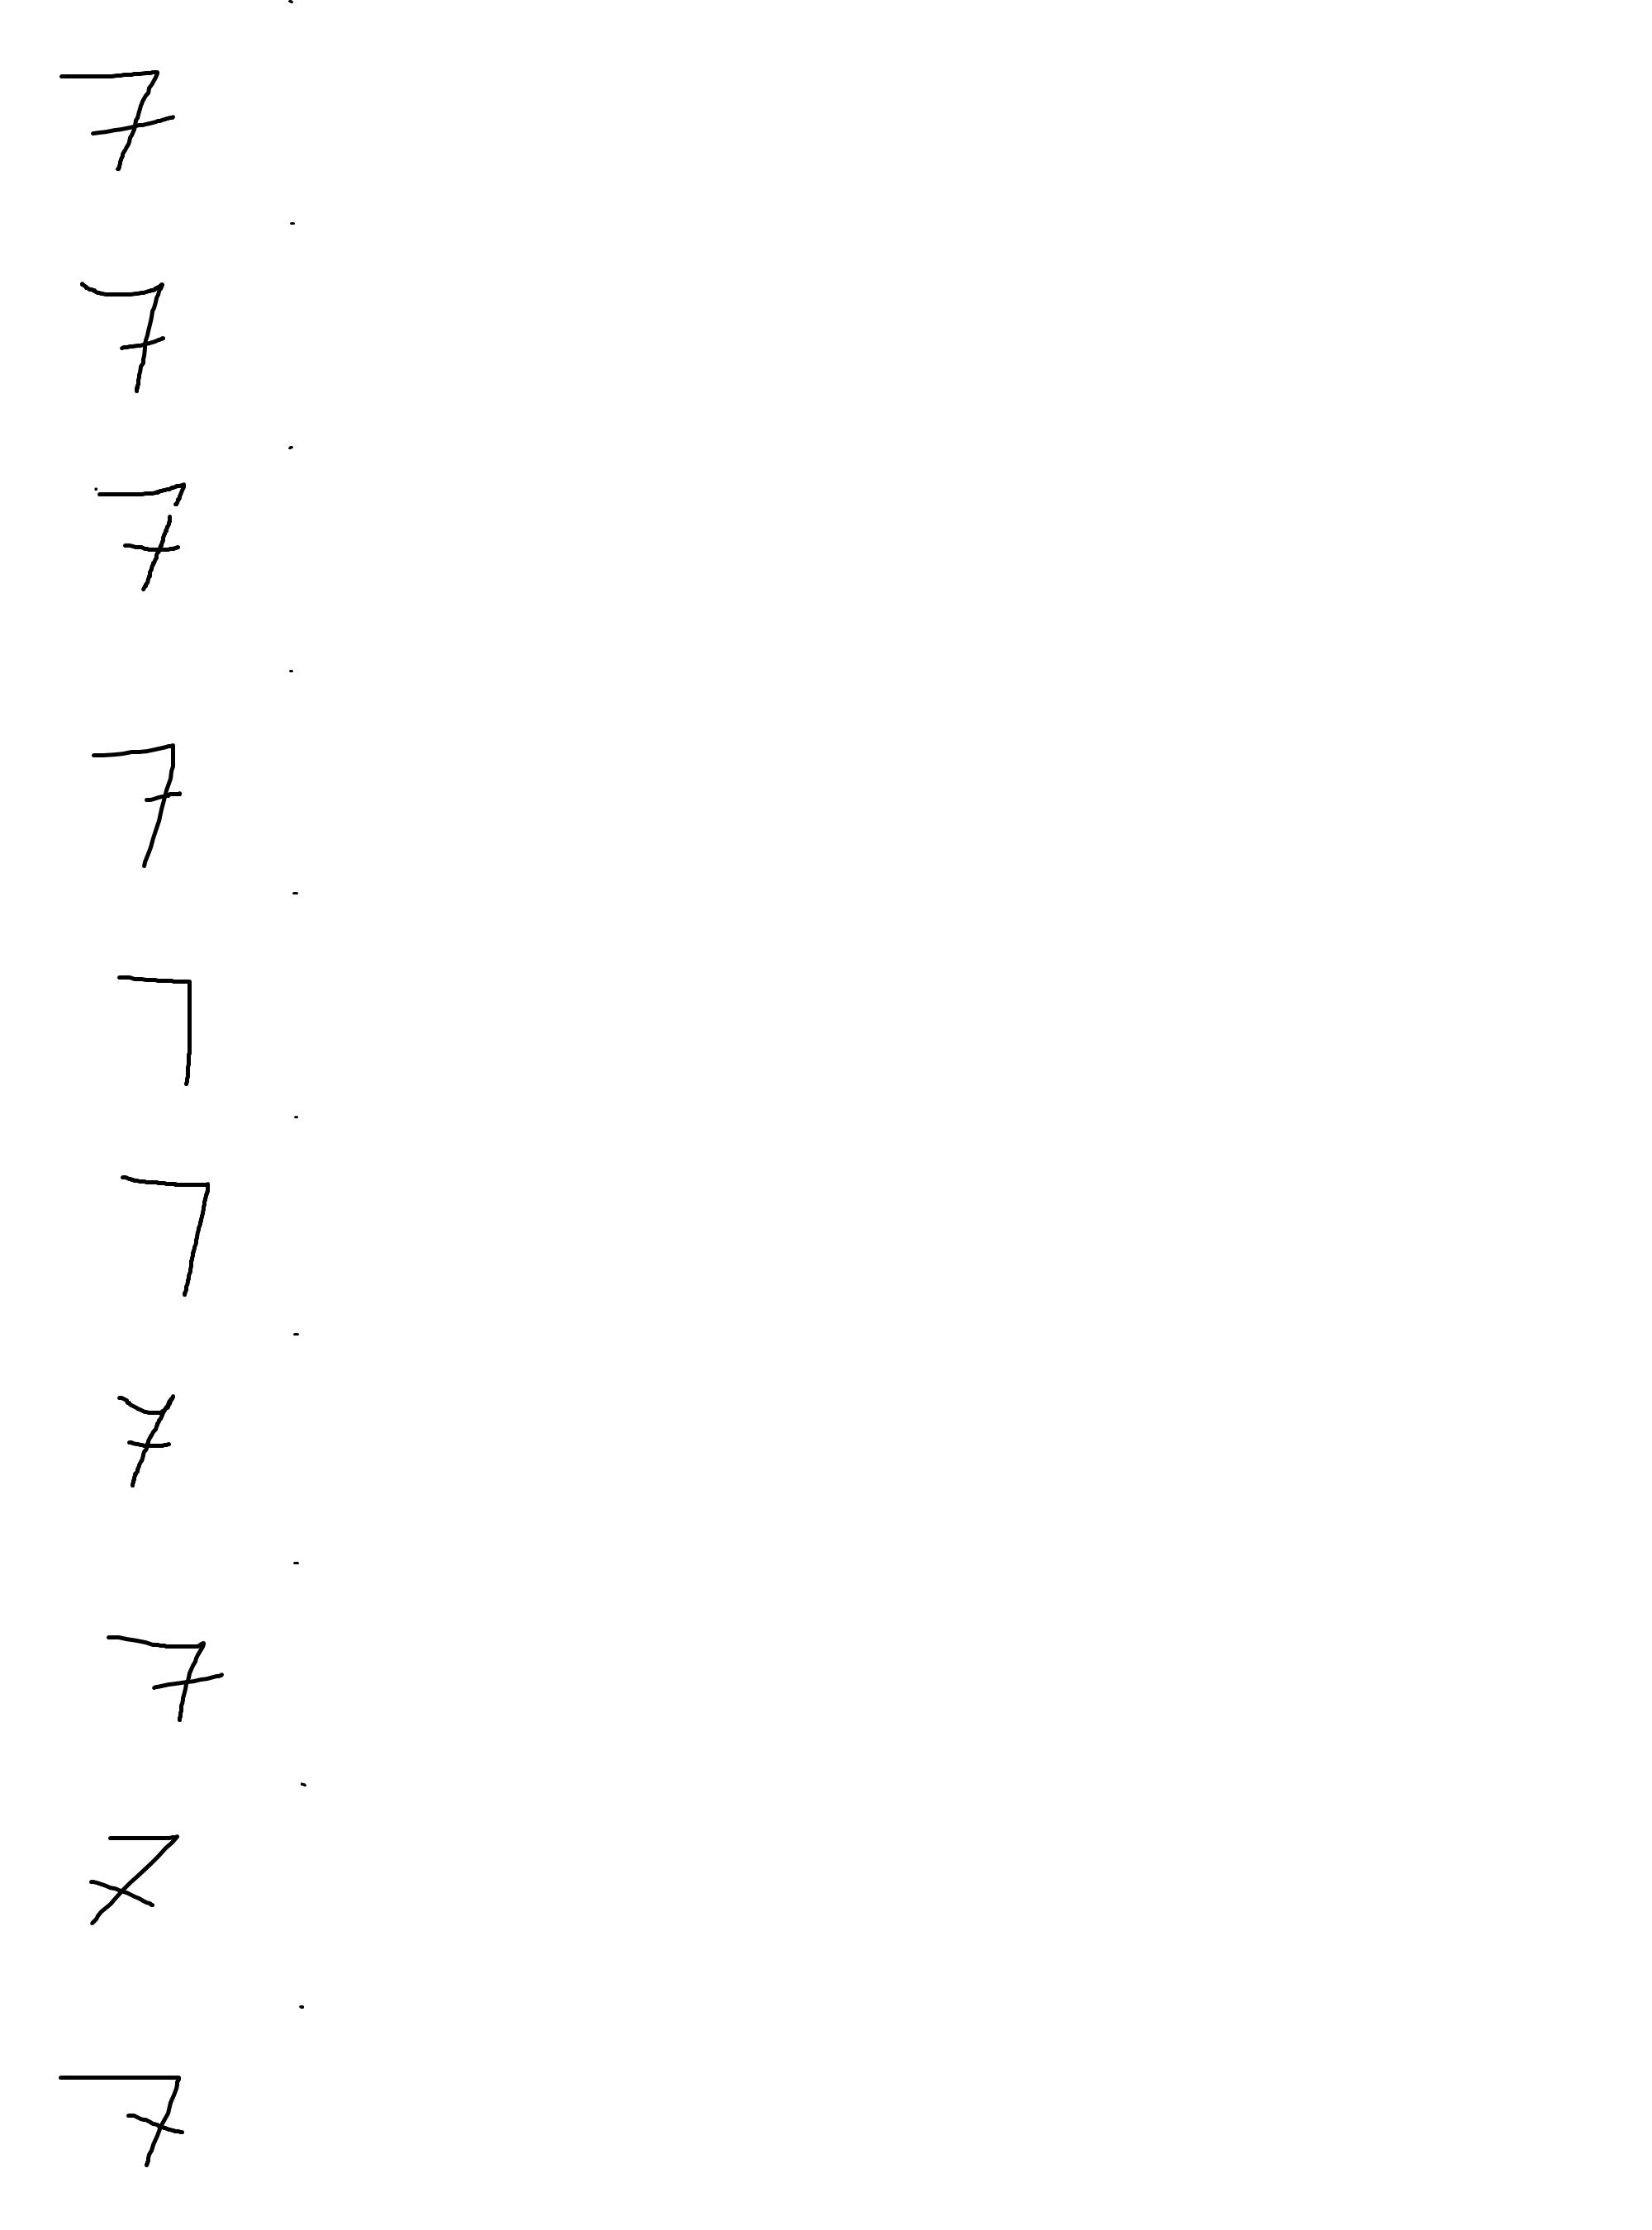 7
7
7
7
7
7
7
7
7
7